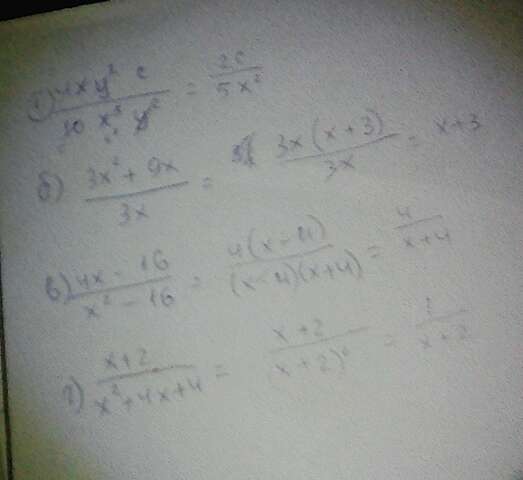 1) 4xy² c / 10 x³ y² = 2c / 5x²
б) 3x² + 9x / 3x = 3x(x+3) / 3x = x+3
в) 4x - 16 / x² - 16 = 4(x-4) / (x-4)(x+4) = 4 / x+4
г) x+2 / x²+4x+4 = x+2 / (x+2)² = 1 / x+2